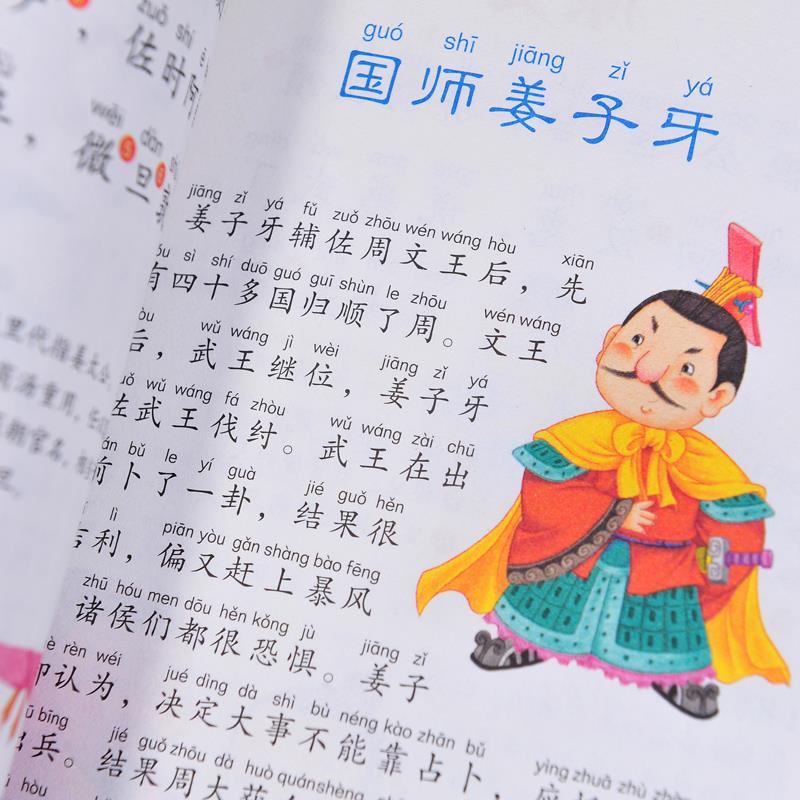 zuǒ shí
，佐时阿
wēi dàn
，微旦
代指姜太公
汤重用，
官名，
guó shī jiāng zǐ yá
国师姜子牙
jiāng zǐ yá fǔ zuǒ zhōu wén wáng hòu xiān
姜子牙辅佐周文王后，先
sì shí duō guó guī shùn le zhōu wén wáng
有四十多国归顺了周。文王
wǔ wáng jì wèi jiāng zǐ yá
后，武王继位，姜子牙
wǔ wáng fá zhòu wǔ wáng zài chū
佐武王伐纣。武王在出
bǔ le yí guà jié guǒ hěn
前卜了一卦，结果很
lì piān yòu gǎn shàng bào fēng
利，偏又赶上暴风
zhū hóu men dōu hěn kǒng jù jiāng zǐ
诸侯们都很恐惧。姜子
rèn wéi jué dìng dà shì bù néng kào zhān bǔ
却认为，决定大事不能靠占卜，
bīng jié guǒ zhōu dà huò quán shèng yīng zhuā zhù
出兵。结果周大获全